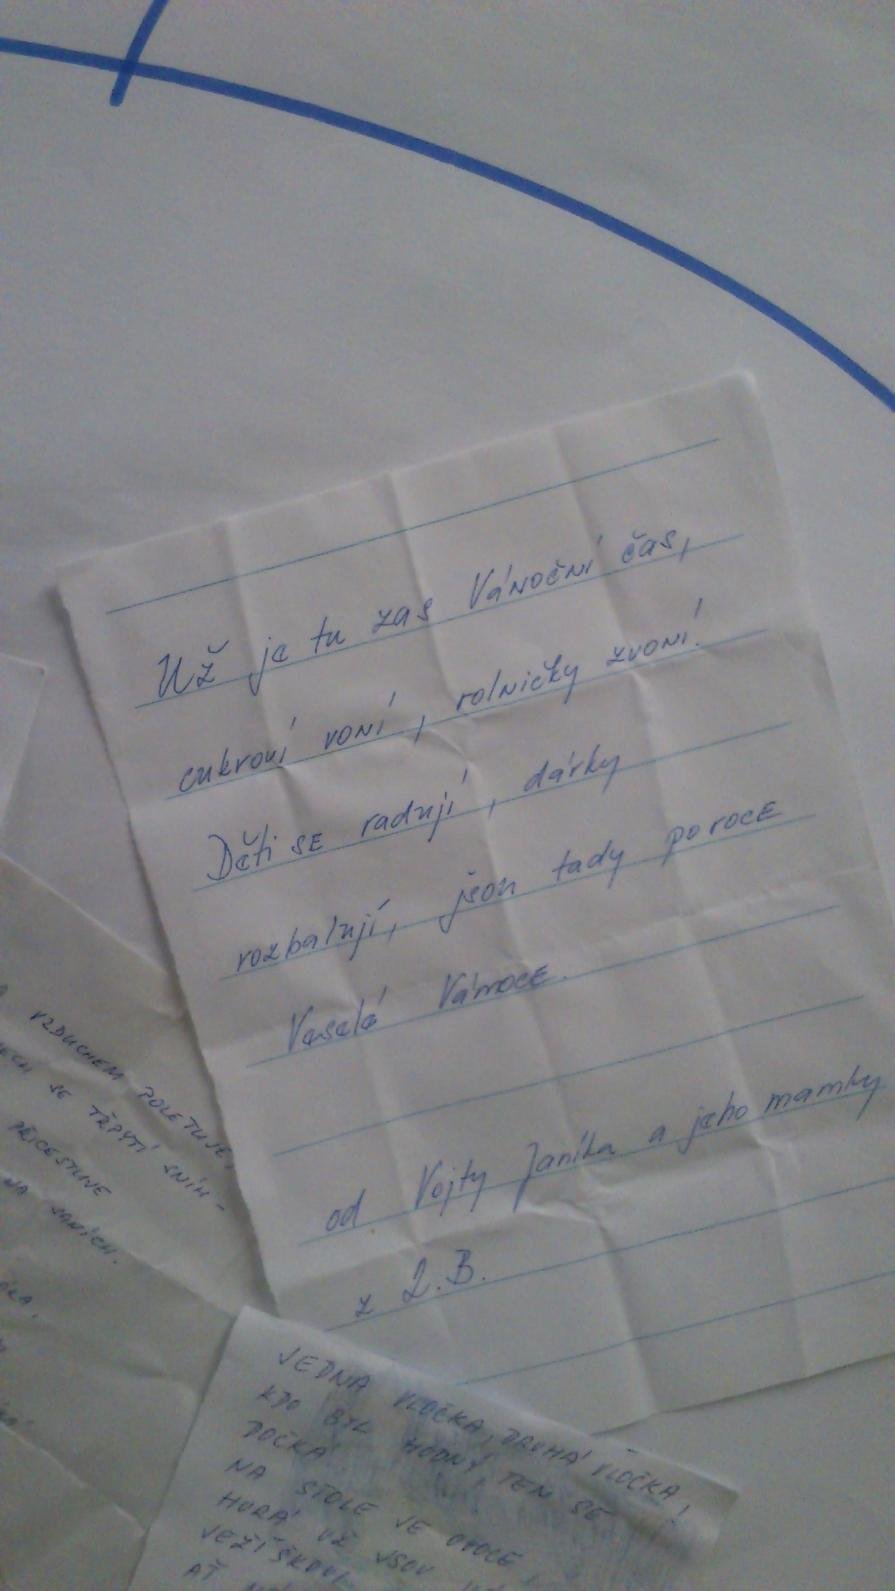 Už je tu zas Vánoční čas,
cukroví voní, rolničky zvoní!
Děti se radují, dárky
rozbalují, jsou tady po roce
Veselé Vánoce.
od Vojty Janíka a jeho mamky
z 2.B.
VZDUCHEM POLETUJE,
SE TŘPYTÍ SNÍH -
PŘICESTUJE
NA SANÍCH.
JEDNA VLOČKA, DRUHÁ VLOČKA!
KDO BYL HODNÝ TEN SE
DOČKÁ!
NA STOLE JE OVOCE,
HURÁ UŽ JSOU
JEŽÍŠKOVI
AŤ